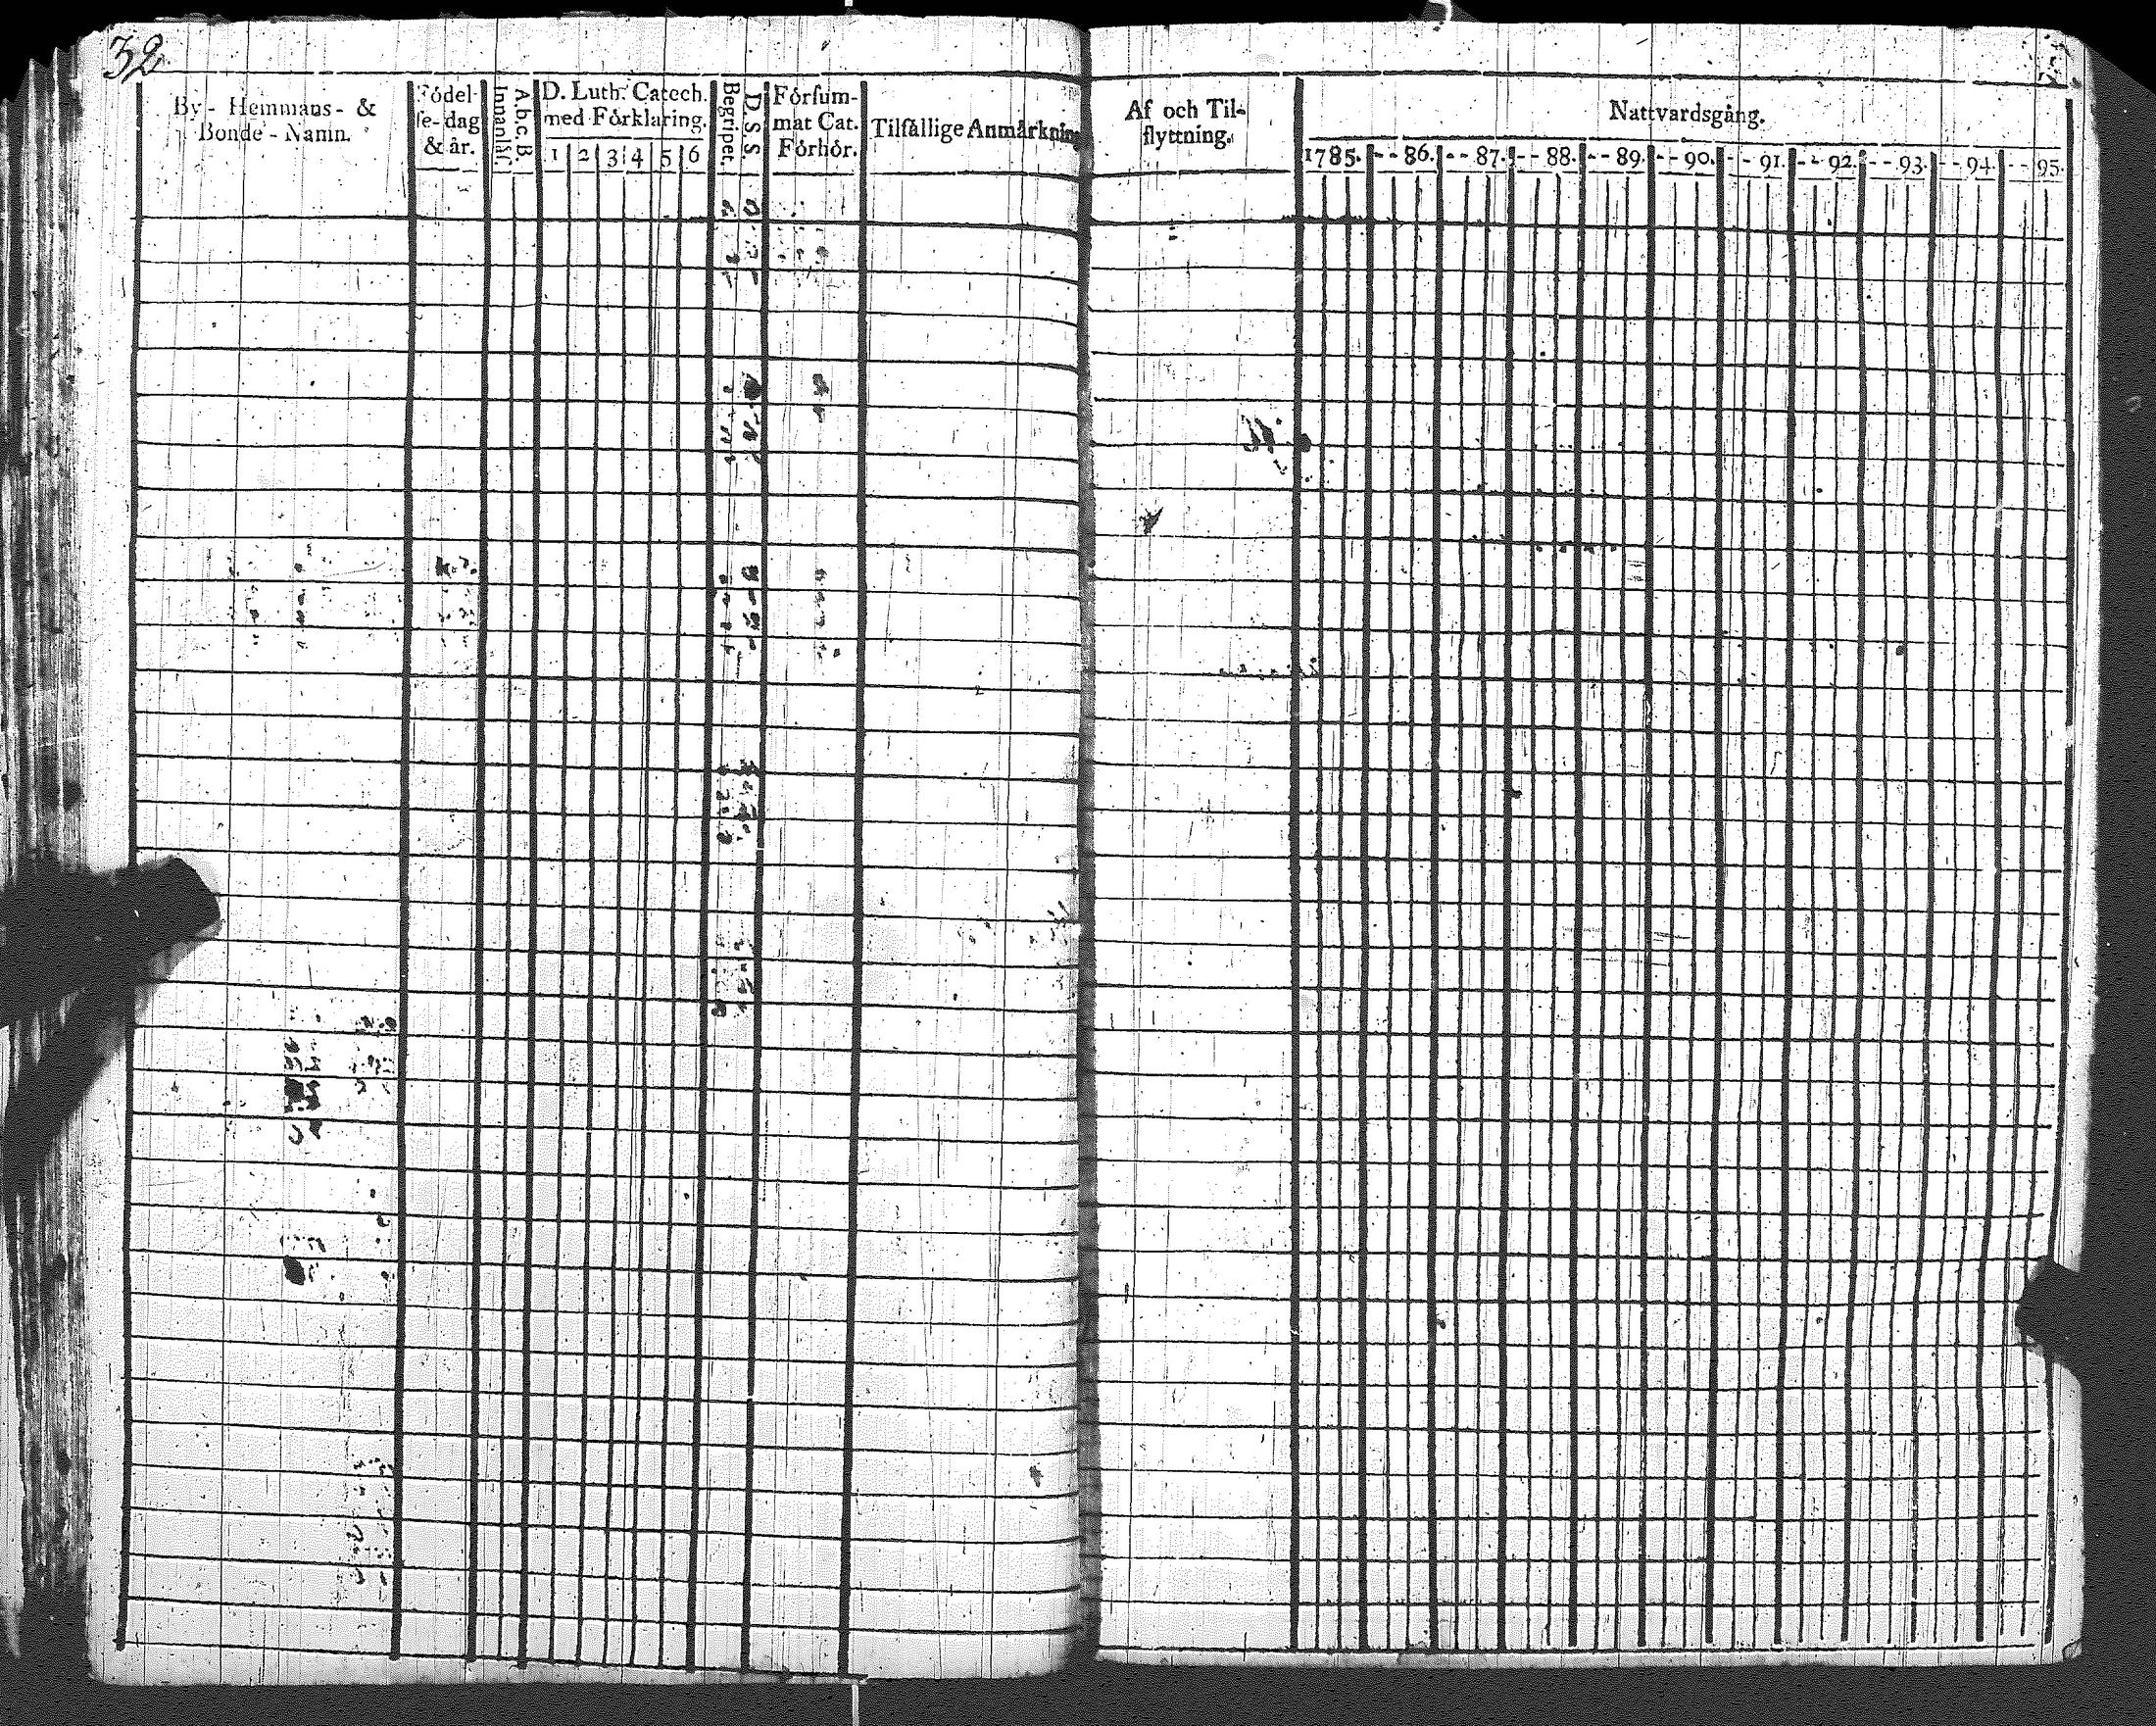 32
By- Hemmans- &
Bonde-Namn.
Födel-
se-dag
& år.
Innanläs.
A.b.c.B.
D. Luth. Catech.
med Förklaring.
1 2 3 4 5 6
Begripet.
D. S. S.
Försum-
mat Cat.
Förhör.
Tilfällige Anmärkning
Af och Til-
flyttning.
Nattvardsgång.
1785. - - 86. - - 87. - - 88. - - 89. - - 90. - - 91. - - 92. - - 93. - - 94. - - 95.